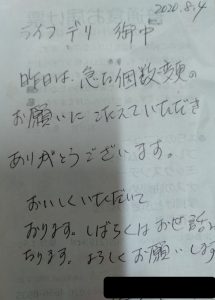 2020.8.4
ライフデリ 御中
昨日は、急な個数変更の
お願いにこたえていただき
ありがとうございます。
おいしくいただいて
おります。しばらくはお世話に
なります。よろしくお願いします